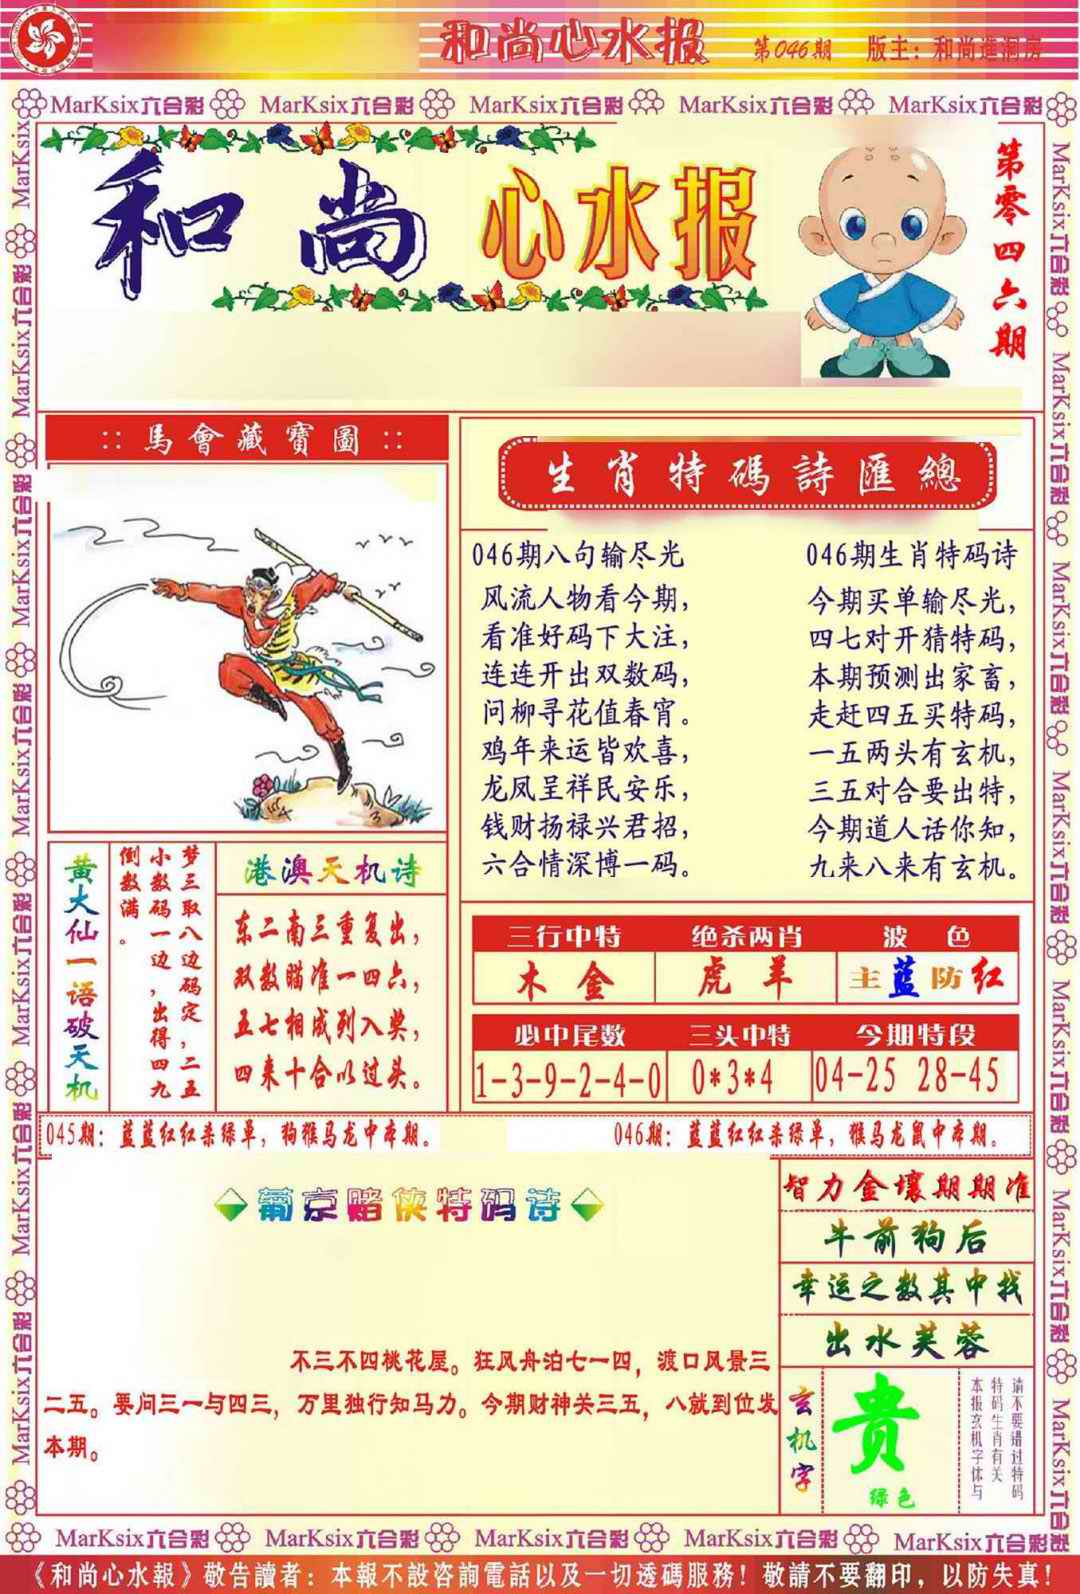 和尚心水报 第046期 版主：和尚進洞房
MarKsix六合彩 MarKsix六合彩 MarKsix六合彩 MarKsix六合彩 MarKsix六合彩
和尚心水报
第零四六期
馬會藏寶圖
生肖特碼詩匯總
046期八句输尽光
风流人物看今期，
看准好码下大注，
连连开出双数码，
问柳寻花值春宵。
鸡年来运皆欢喜，
龙凤呈祥民安乐，
钱财扬禄兴君招，
六合情深博一码。
046期生肖特码诗
今期买单输尽光，
四七对开猜特码，
本期预测出家畜，
走赶四五买特码，
一五两头有玄机，
三五对合要出特，
今期道人话你知，
九来八来有玄机。
黄大仙一语破天机
梦三取八边码定，二五
小数码一边，出得四九
倒数满。
港澳天机诗
东二南三重复出，
双数瞄准一四六，
五七相成列入奖，
四来十合以过头。
三行中特 绝杀两肖 波色
木金 虎羊 主蓝防红
必中尾数 三头中特 今期特段
1-3-9-2-4-0 0*3*4 04-25 28-45
045期：蓝蓝红红杀绿单，狗猴马龙中本期。
046期：蓝蓝红红杀绿单，猴马龙鼠中本期。
葡京赌侠特码诗
不三不四桃花屋。狂风舟泊七一四，渡口风景三
二五。要问三一与四三，万里独行知马力。今期财神关三五，八就到位发
本期。
智力金壤期期准
牛前狗后
幸运之数其中找
出水芙蓉
玄机字
贵
绿色
请不要错过特码
特码生肖有关
本报玄机字体与
MarKsix六合彩 MarKsix六合彩 MarKsix六合彩 MarKsix六合彩 MarKsix六合彩
《和尚心水報》敬告讀者：本報不設咨詢電話以及一切透碼服務！敬請不要翻印，以防失真！